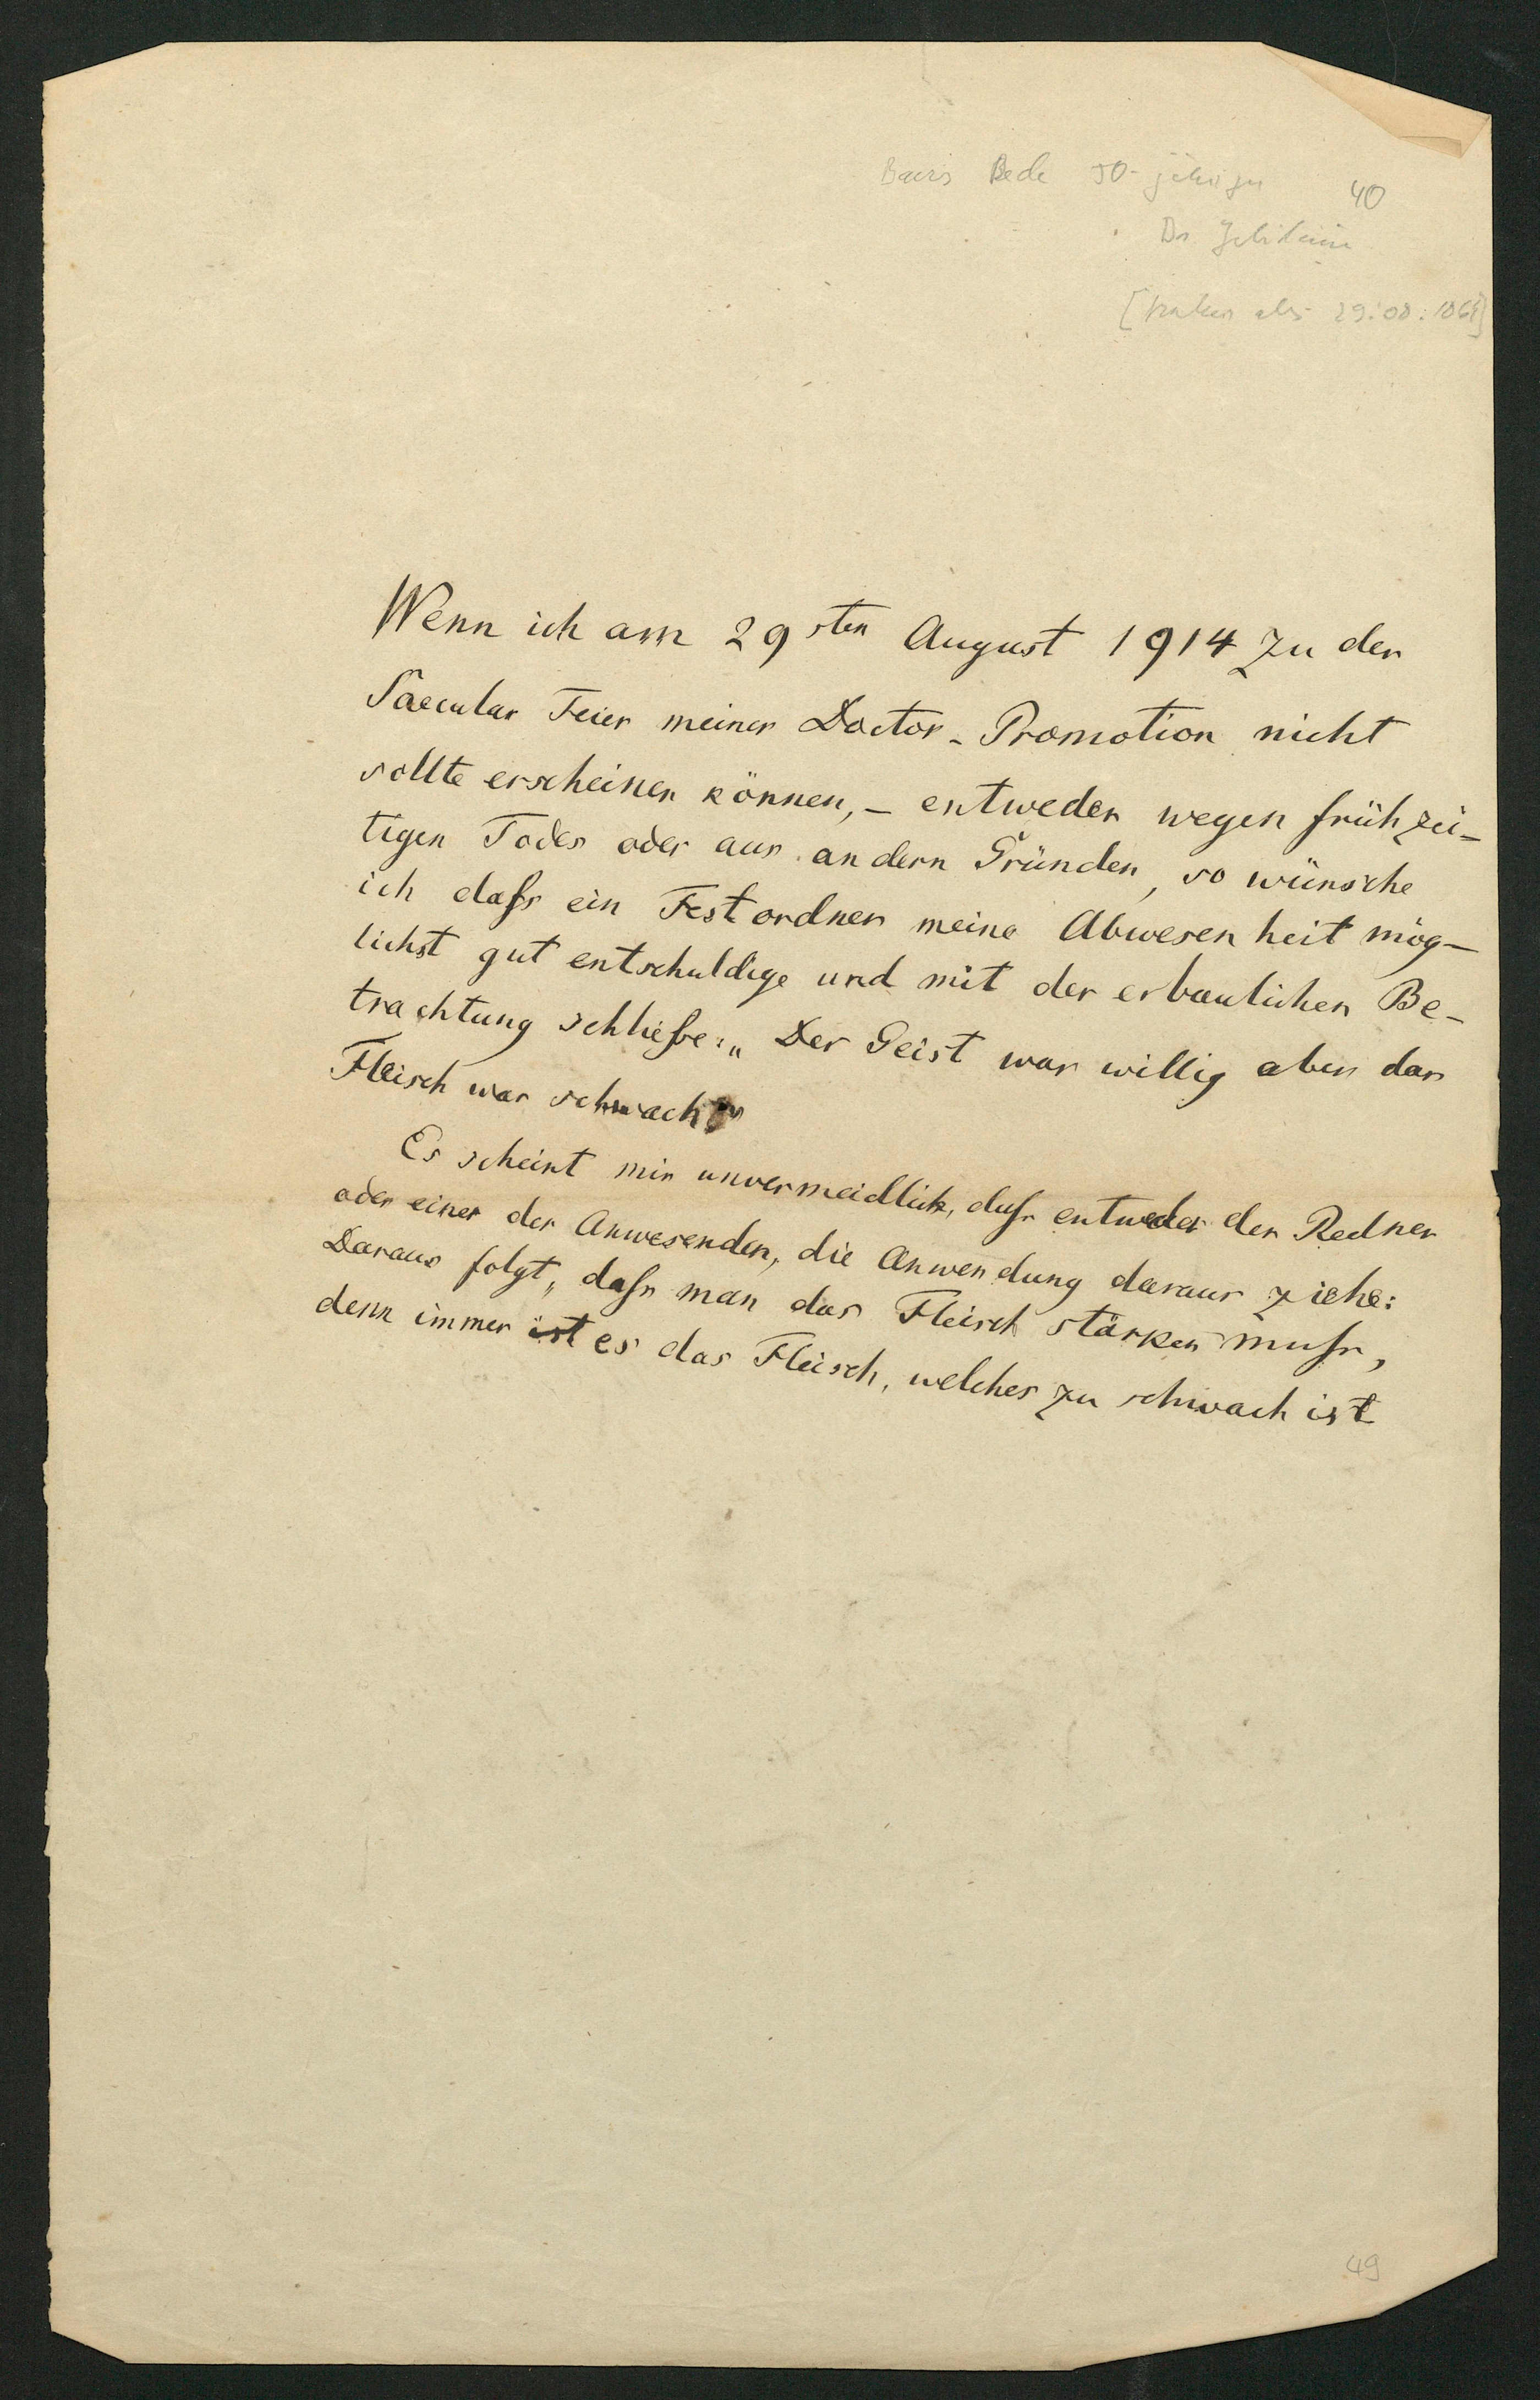 Baers Rede 50-jähriges
40
Dr. Jubiläum
29.08.1864]
Wenn ich am 29sten August 1914 zu der
Saecular Feier meiner Doctor-Promotion nicht
sollte erscheinen können, – entweder wegen frühzei-
tigen Todes oder aus andern Gründen, so wünsche
ich daſs ein Festordner meine Abwesenheit mög-
lichst gut entschuldige und mit der erbaulichen Be-
trachtung schlieſse: „Der Geist war willig aber das
Fleisch war schwach“
Es scheint mir unvermeidlich, daſs entweder der Redner
oder einer der Anwesenden, die Anwendung daraus ziehe:
Daraus folgt, daſs man das Fleisch stärken muſs,
denn immer ist es das Fleisch, welches zu schwach ist
49